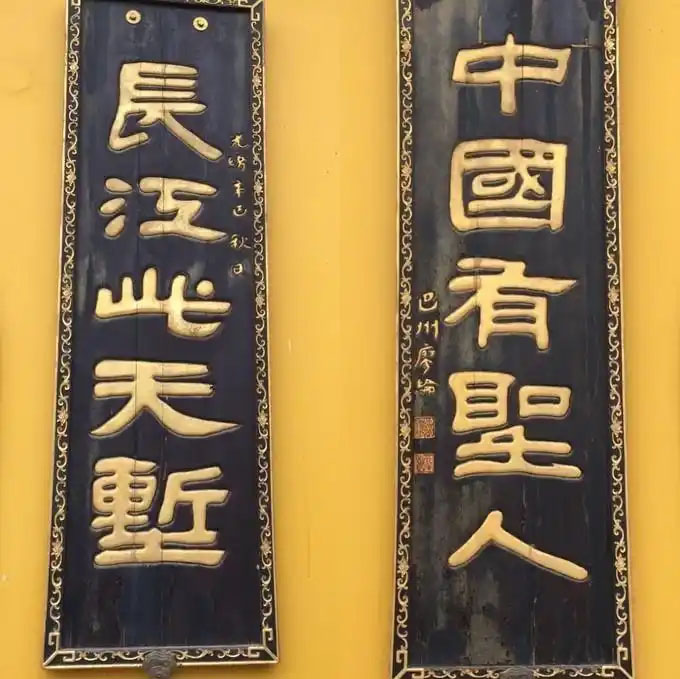 長江此天塹
光緒辛巳秋日
中國有聖人
巴州廖綸